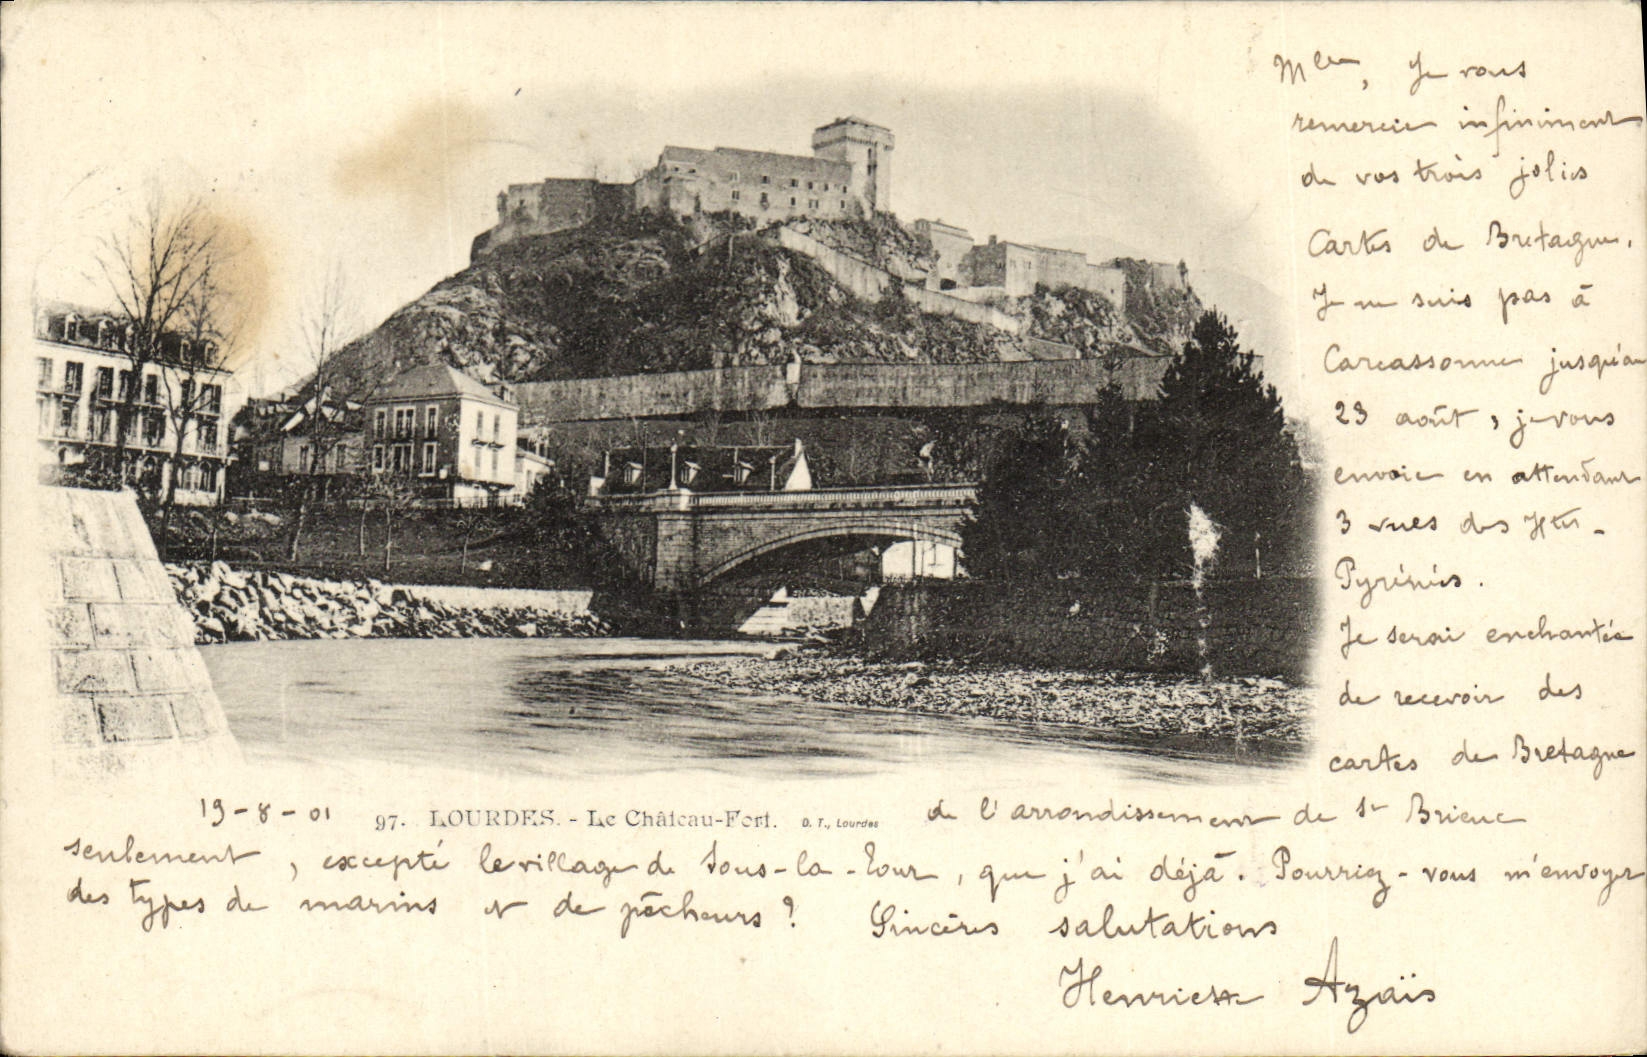 Mlle, Je vous
remercie infiniment
de vos trois jolies
Cartes de Bretagne.
Je ne suis pas à
Carcassonne jusqu'au
23 août, je vous
envoie en attendant
3 vues des Htes-
Pyrénées.
Je serai enchantée
de recevoir des
cartes de Bretagne
19-8-01
97. LOURDES. - Le Château-Fort. D. T., Lourdes
de l'arrondissement de St Brieuc
seulement, excepté le village de Sous-la-Tour, que j'ai déjà. Pourriez-vous m'envoyer
des types de marins et de pêcheurs? Sincères salutations
Henriette Azaïs